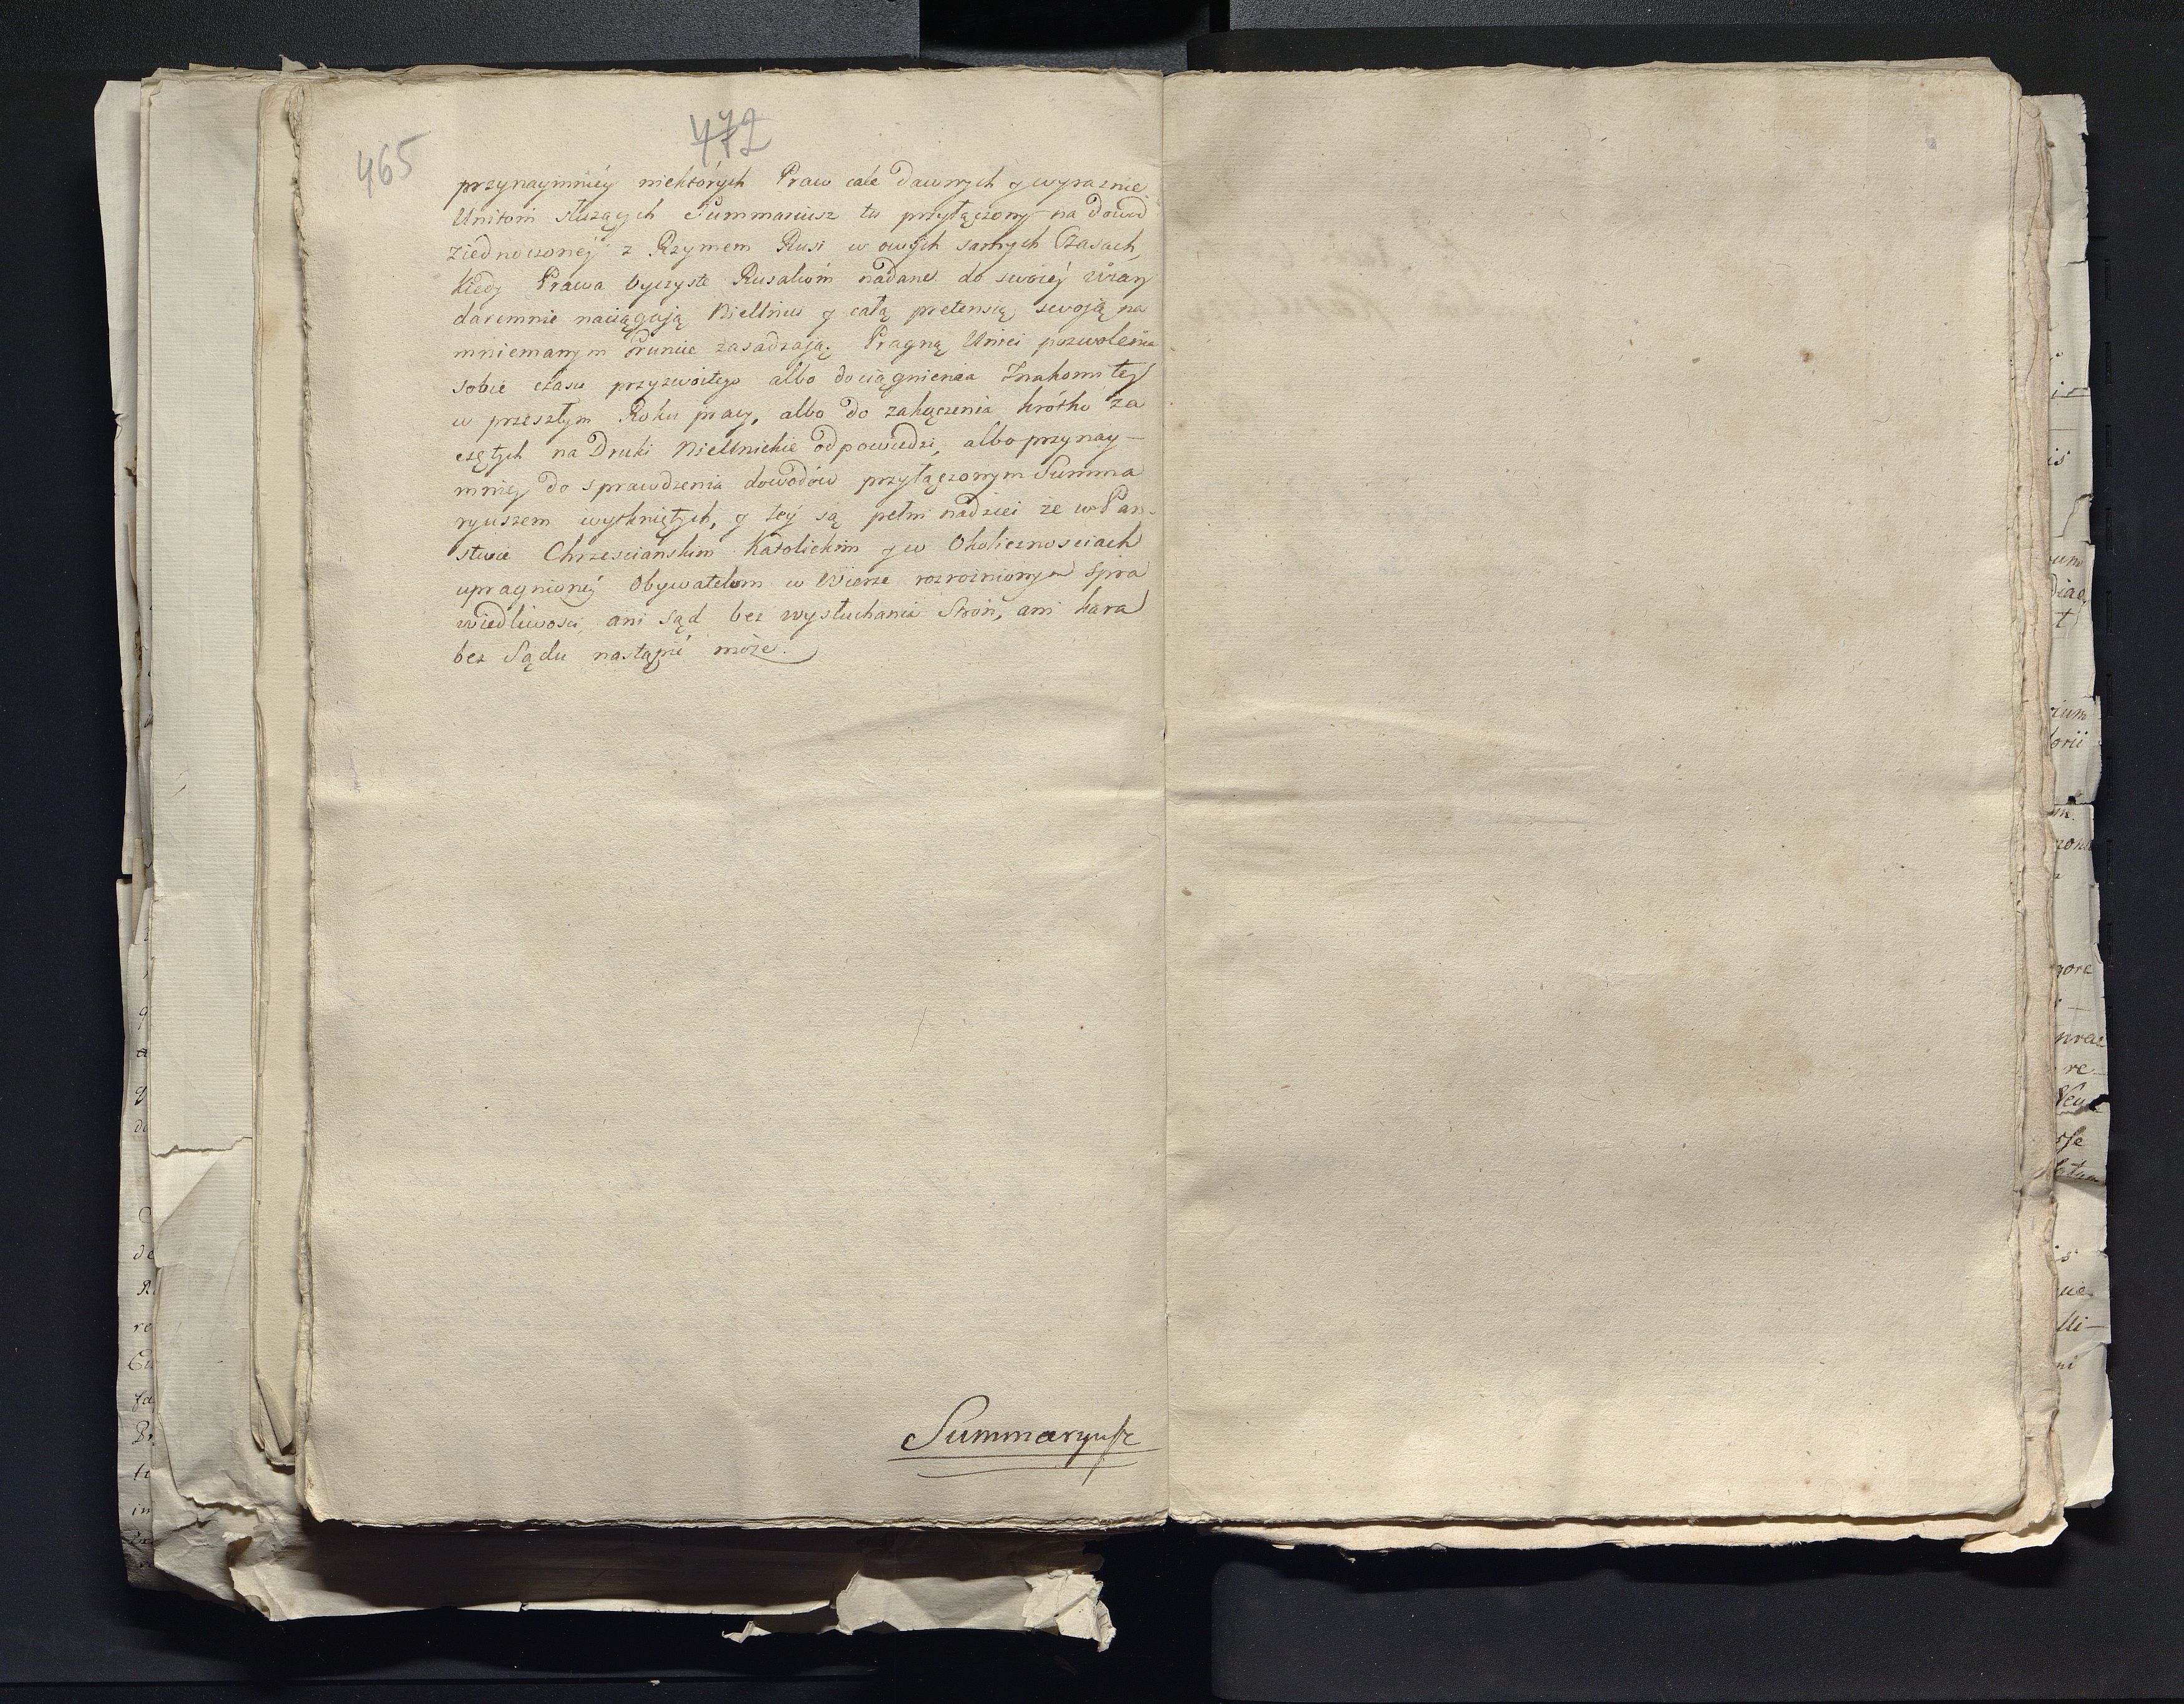 465
472
przynaymniey niektórych Praw cale dawnych y wyraznie
Unitom służących Summariusz tu przyłączony na dowod
ziednoczoney z Rzymem Rusi w owych samych Czasach,
kiedy Prawa Oyczyste Rusakom nadane do swoiey Wiary
daremnie naciągaią Nieunici y całą pretensią swoią na
mniemanym Gruncie zasadzaią. Pragną Unici pozwolenia
sobie czasu przyzwoitego albo dociągnienia Znakomitey
w przeszłym Roku pracy, albo do zakączenia krótko za
czętych na Druki Nieunickie odpowiedzi, albo przynay-
mniey do sprawdzenia dowodów przyłączonym Summa
ryuszem wytkniętych, y tey są pełni nadziei że w Pań-
stwie Chrzescianskim Katolickim y w Okolicznosciach
upragnioney Obywatelom w Wierze rozrożnionym Spra
wiedliwosci, ani Sąd bez wysłuchania Stron, ani kara
bez Sądu nastąpić może.
Summaryusz